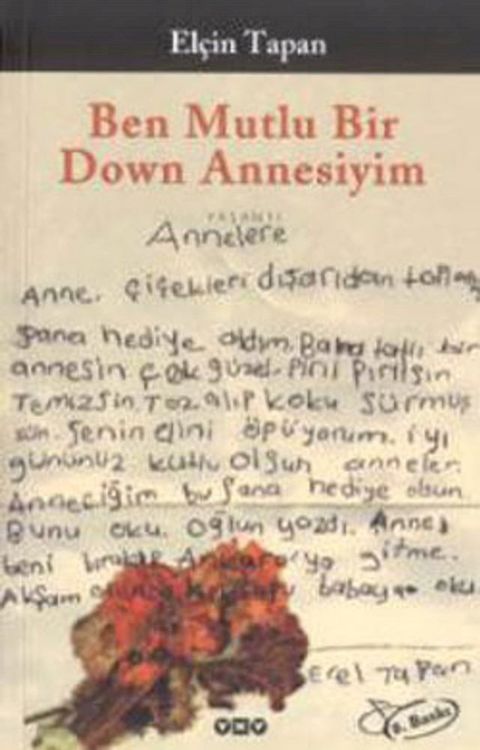 Elçin Tapan
Ben Mutlu Bir
Down Annesiyim
YAŞANTI
Annelere
Anne, çiçekleri dışarıdan
Sana hediye aldım. Bana tatlı bir
annesin çok güzel. Pırıl Pırılsın
Temizsin. Toz alıp koku sürmüş
sün. Senin elini öpüyorum. iyi
gününüz kutlu olsun anneler.
Anneciğim bu sana hediye olsun
Bunu oku. Oğlun yazdı. Anne
beni Ankara'ya gitme.
Akşam babaya oku.
Erel Tapan
YKY
8. Baskı